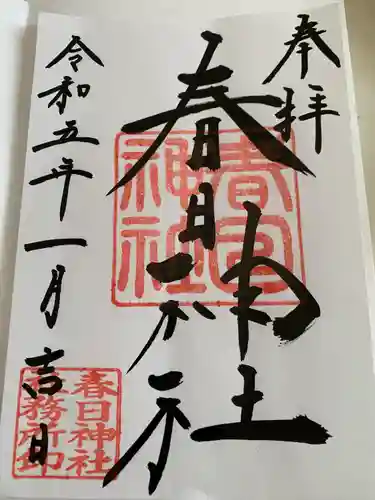 奉拝
春日神社
令和五年一月吉日
春日神社
社務所印